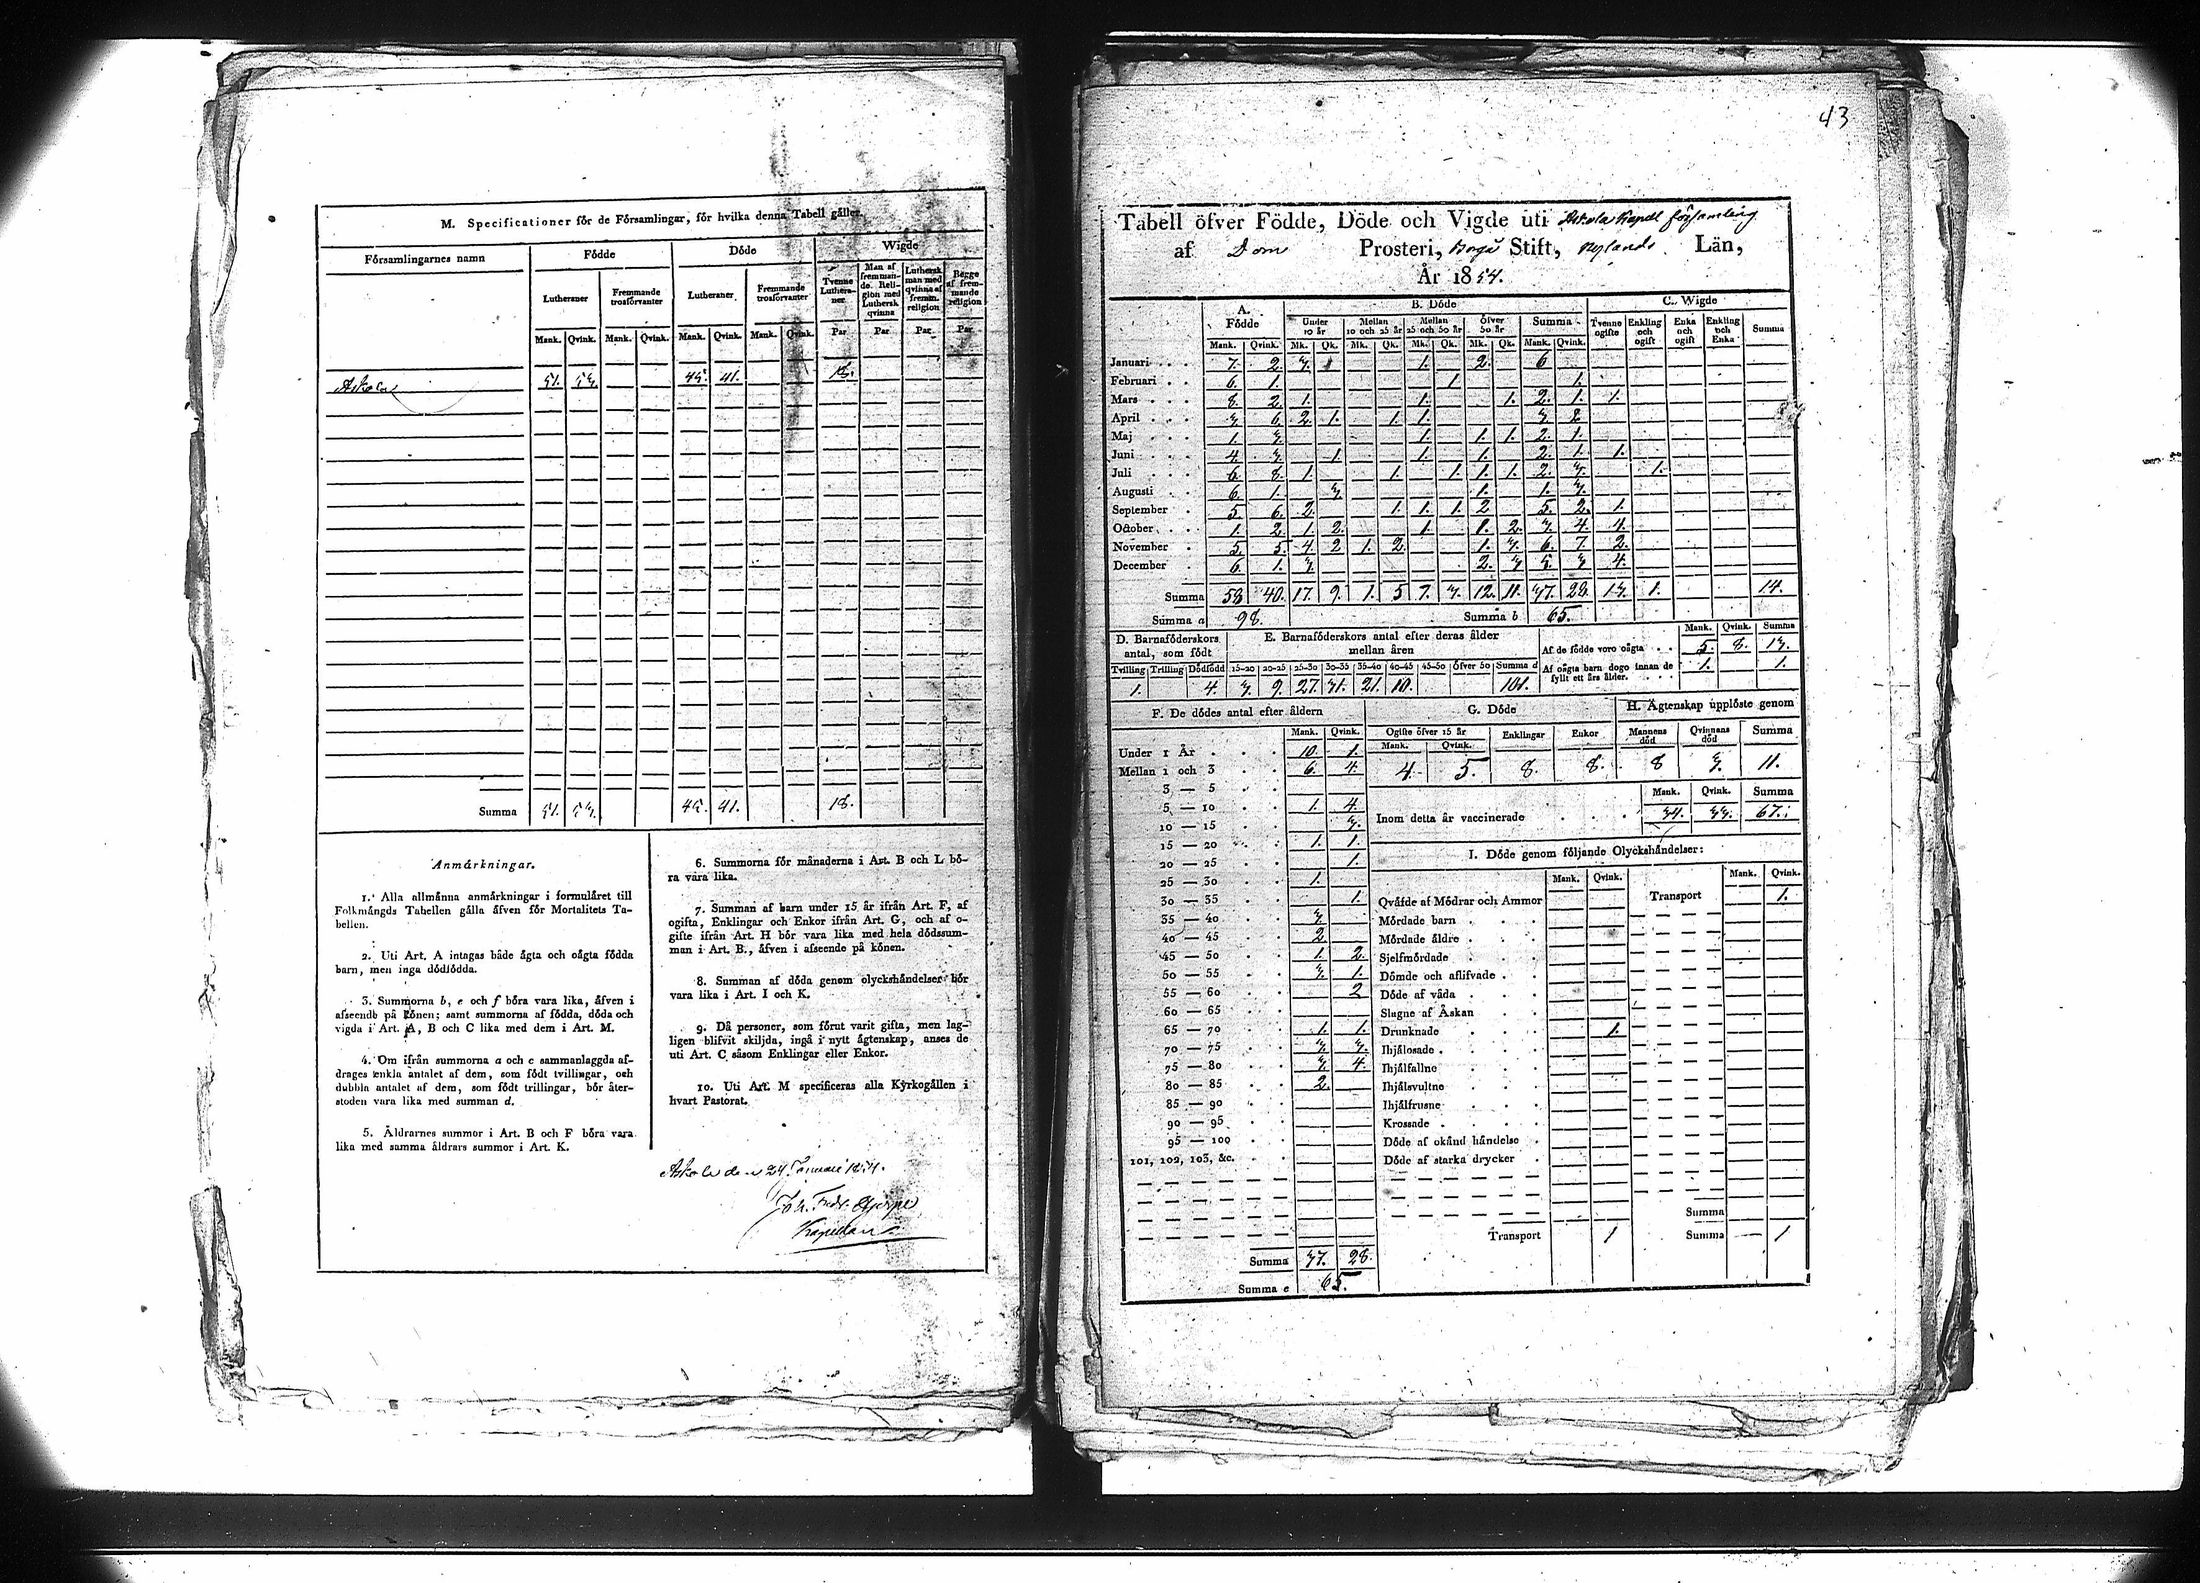 M. Specificationer för de Församlingar, för hvilka denna Tabell gäller.
Församlingarnes namn
Födde
Döde
Wigde
Lutheraner
Fremmande trosförvanter
Lutheraner
Fremmande trosförvanter
Tvenne Lutheraner
Man af fremmande Religion med Luthersk qvinna
Luthersk man med qvinna af fremm. religion
Begge af fremmande religion
Mank. Qvink. Mank. Qvink. Mank. Qvink. Mank. Qvink. Par Par Par Par
Askola 51. 53. 45. 41. 18.
Summa 51. 53. 45. 41. 18.
Anmärkningar.
1. Alla allmänna anmärkningar i formuläret till
Folkmängds Tabellen gälla äfven för Mortalitets Ta-
bellen.
2. Uti Art. A intagas både ägta och oägta födda
barn, men inga dödfödda.
3. Summorna b, e och f böra vara lika, äfven i
afseende på könen; samt summorna af födda, döda och
vigda i Art. A, B och C lika med dem i Art. M.
4. Om ifrån summorna a och c sammanlaggda af-
drages enkla antalet af dem, som födt tvillingar, och
dubbla antalet af dem, som födt trillingar, bör åter-
stoden vara lika med summan d.
5. Åldrarnes summor i Art. B och F böra vara
lika med samma åldrars summor i Art. K.
6. Summorna för månaderna i Art. B och L bö-
ra vara lika.
7. Summan af barn under 15 år ifrån Art. F, af
ogifta, Enklingar och Enkor ifrån Art. G, och af o-
gifte ifrån Art. H bör vara lika med hela dödssum-
man i Art. B., äfven i afseende på könen.
8. Summan af döda genom olyckshändelser bör
vara lika i Art. I och K.
9. Då personer, som förut varit gifta, men lag-
ligen blifvit skiljda, ingå i nytt ägtenskap, anses de
uti Art. C såsom Enklingar eller Enkor.
10. Uti Art. M specificeras alla Kyrkogällen i
hvart Pastorat.
Askola den 24 Januari 1854.
Joh. Fredr.
Kapellan
43
Tabell öfver Födde, Döde och Vigde uti Askola Kapell församling
af Dom Prosteri, Borgå Stift, Nylands Län,
År 1854.
A. Födde
B. Döde
C. Wigde
Under 10 år
Mellan 10 och 25 år
Mellan 25 och 50 år
Öfver 50 år
Summa
Tvenne ogifte
Enkling och ogift
Enka och ogift
Enkling och Enka
Summa
Mank. Qvink. Mk. Qk. Mk. Qk. Mk. Qk. Mk. Qk. Mank. Qvink.
Januari 7. 2. 3. 1. 2. 6
Februari 6. 1. 1. 1.
Mars 8. 2. 1. 1. 1. 2. 1. 1.
April 3. 6. 2. 1. 1. 1. 3. 2
Maj 1. 3. 1. 1. 1. 2. 1.
Juni 4. 3. 1. 1. 1. 2. 1. 1.
Juli 6. 8. 1. 1. 1. 1. 1. 2. 3. 1.
Augusti 6. 1. 3. 1. 1. 3.
September 5. 6. 2. 1. 1. 1. 2 5. 2. 1.
October 1. 2. 1. 2. 1. 1. 2. 3. 4. 4.
November 5. 5. 4. 2 1. 2. 1. 3. 6. 7. 2.
December 6. 1. 3. 2. 3 5. 3 4.
Summa 58 40. 17. 9. 1. 5 7. 3. 12. 11. 37. 28. 13. 1. 14.
Summa a 98. Summa b 65.
D. Barnaföderskors antal, som födt
E. Barnaföderskors antal efter deras ålder mellan åren
Mank. Qvink. Summa
Af de födde voro oägta 5. 8. 13.
Af oägta barn dogo innan de fyllt ett års ålder. 1. 1.
Tvilling Trilling Dödfödd 15-20 20-25 25-30 30-35 35-40 40-45 45-50 Öfver 50 Summa d
1. 4. 3. 9. 27. 31. 21. 10. 101.
F. De dödes antal efter åldern
Mank. Qvink.
Under 1 År 10. 1.
Mellan 1 och 3 6. 4.
3 — 5
5 — 10 1. 4.
10 — 15 3.
15 — 20 1. 1.
20 — 25 1.
25 — 30 1.
30 — 35 1.
35 — 40 3.
40 — 45 2.
45 — 50 1. 2.
50 — 55 3. 1.
55 — 60 2
60 — 65
65 — 70 1. 1.
70 — 75 3. 3.
75 — 80 3. 4.
80 — 85 2.
85 — 90
90 — 95
95 — 100
101, 102, 103, &c.
Summa 37. 28.
Summa e 65.
G. Döde
Ogifte öfver 15 år
Mank. Qvink. Enklingar Enkor
4. 5. 8. 8.
H. Ägtenskap upplöste genom
Mannens död Qvinnans död Summa
8 3. 11.
Mank. Qvink. Summa
Inom detta år vaccinerade 34. 33. 67.
I. Döde genom följande Olyckshändelser:
Mank. Qvink. Mank. Qvink.
Qväfde af Mödrar och Ammor
Mördade barn
Mördade äldre
Sjelfmördade
Dömde och aflifvade
Döde af våda
Slagne af Åskan
Drunknade 1.
Ihjälosade
Ihjälfallne
Ihjälsvultne
Ihjälfrusne
Krossade
Döde af okänd händelse
Döde af starka drycker
Transport 1
Transport 1.
Summa
Summa — 1